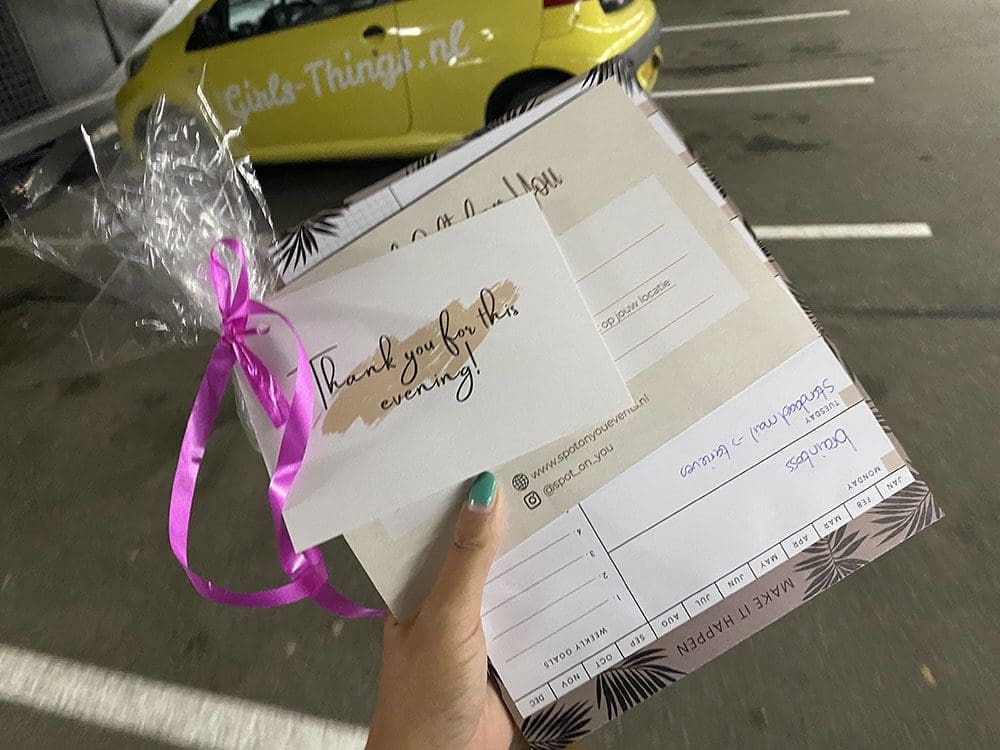 Girls-Things.nl
for You
Thank you for this
evening!
op jouw locatie
www.spotonyouevents.nl
@spot_on_you
MAKE IT HAPPEN
JAN FEB MAR APR MAY JUN JUL AUG SEP OCT NOV DEC
MONDAY
brainboss
TUESDAY
Standaard mail -> tarieven
WEEKLY GOALS
1.
2.
3.
4.